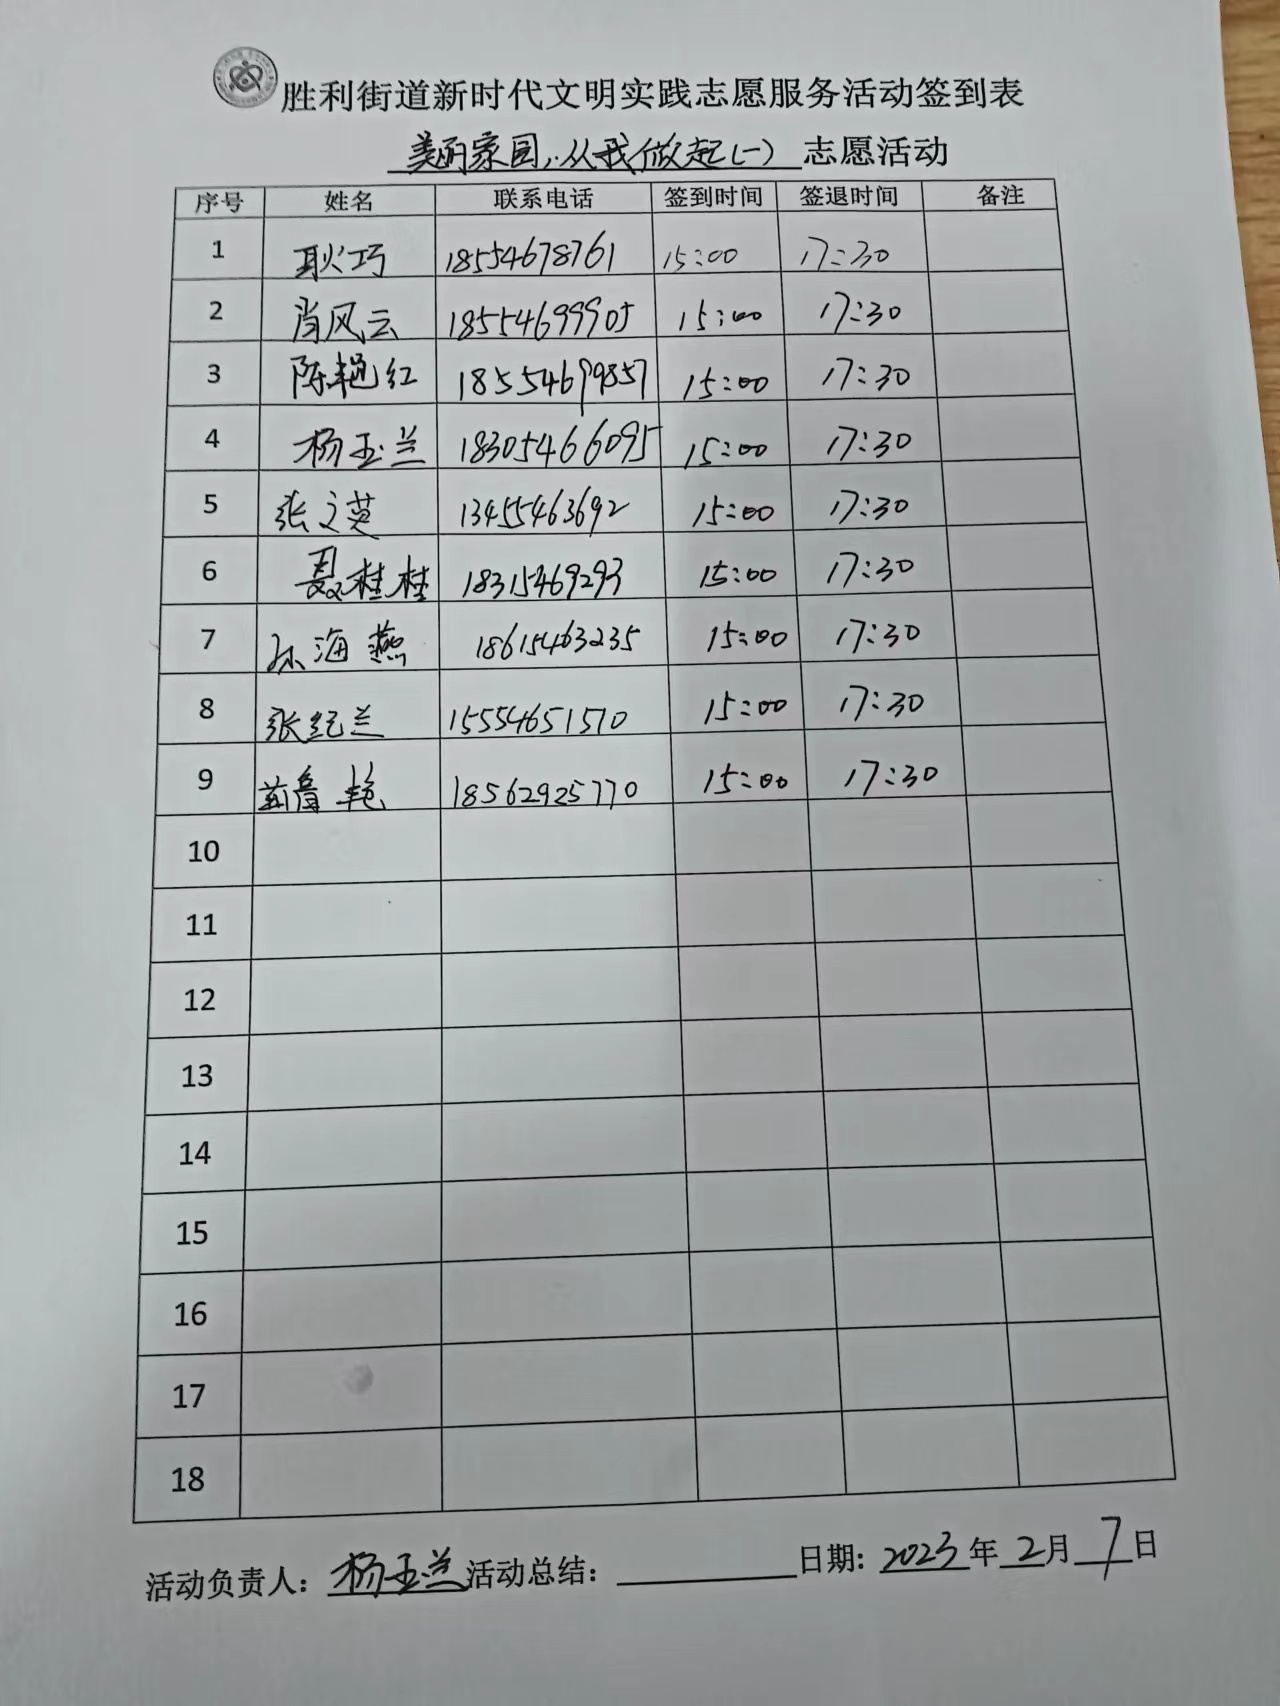 胜利街道新时代文明实践志愿服务活动签到表
美丽家园,从我做起(一) 志愿活动
序号 姓名 联系电话 签到时间 签退时间 备注
1 耿巧 18554678761 15:00 17:30
2 肖风云 18554699905 15:00 17:30
3 陈艳红 18554699857 15:00 17:30
4 杨玉兰 18305466095 15:00 17:30
5 张之英 13455463692 15:00 17:30
6 聂桂桂 18315469293 15:00 17:30
7 孙海燕 18615463235 15:00 17:30
8 张纪兰 15554651570 15:00 17:30
9 艳 18562925770 15:00 17:30
10
11
12
13
14
15
16
17
18
活动负责人: 杨玉兰 活动总结: 日期: 2023年2月7日